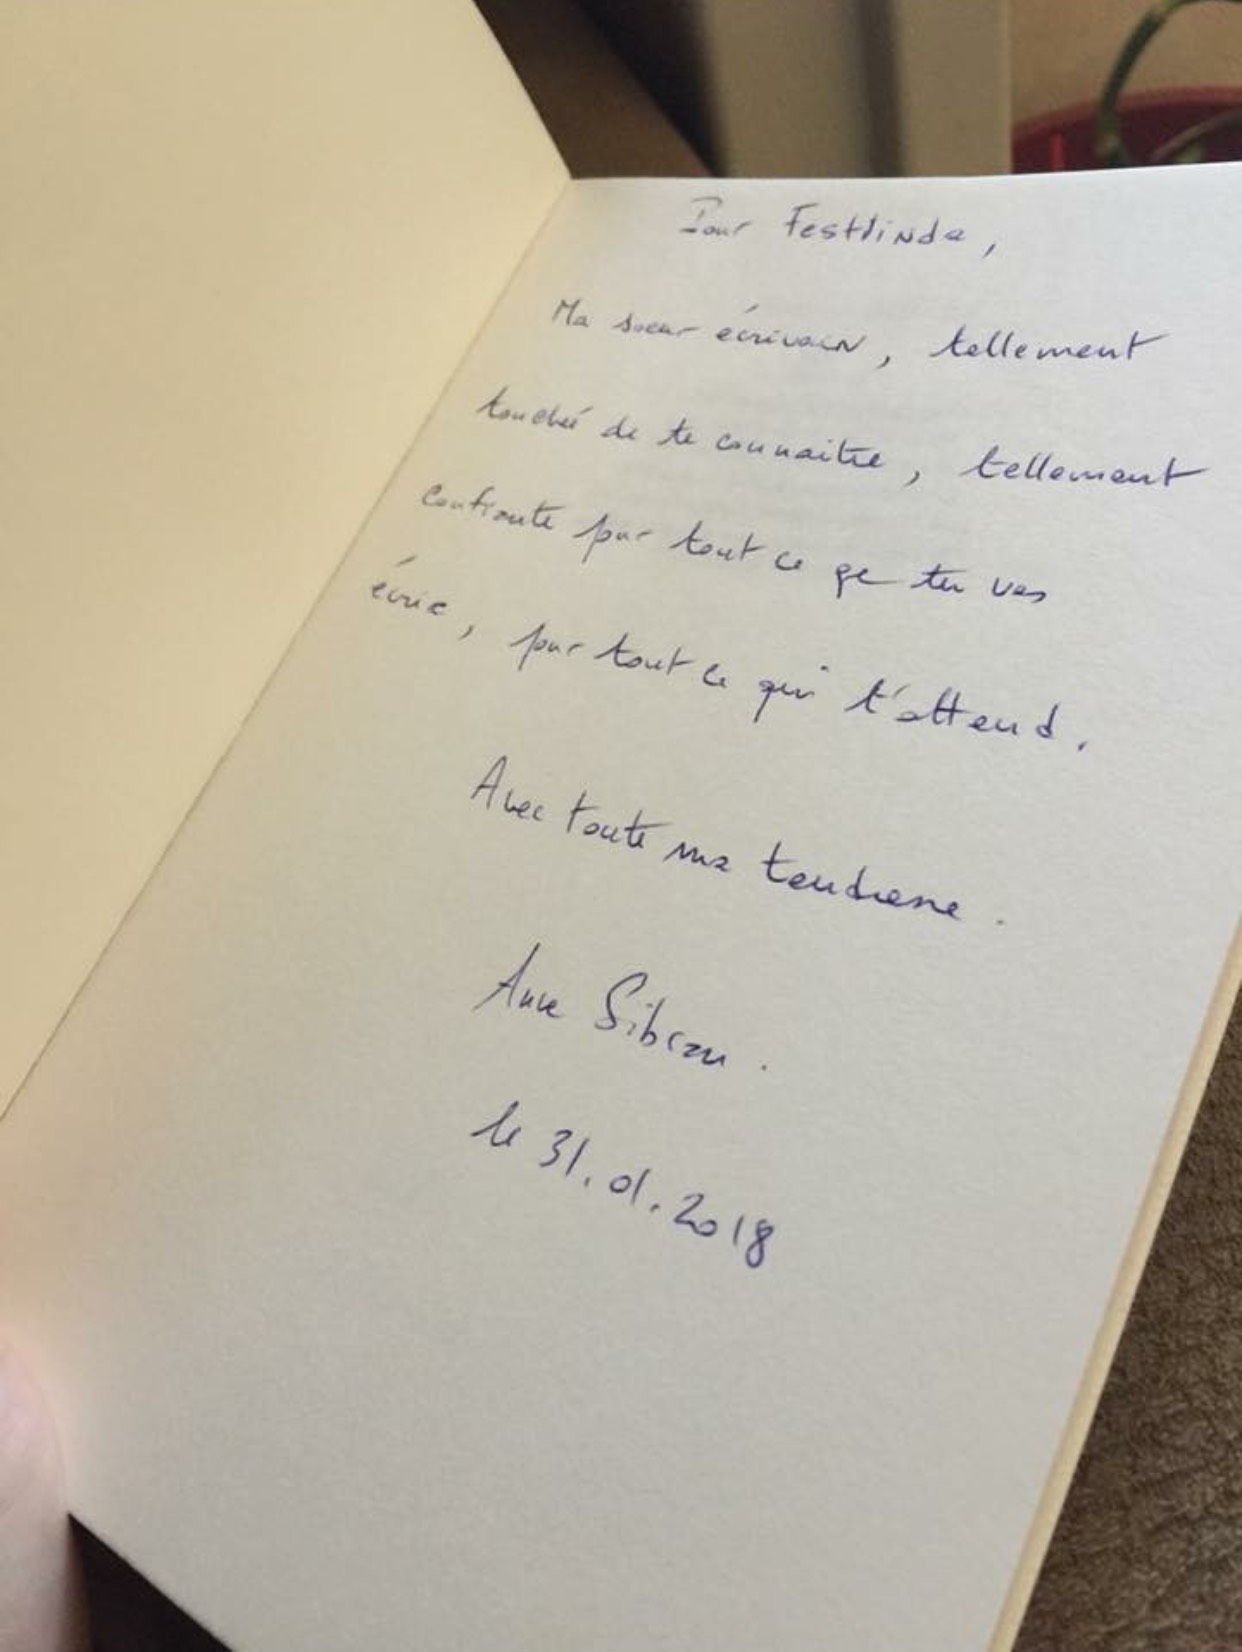 Pour Festlinda,
Ma soeur écrivain, tellement
touchée de te connaitre, tellement
confiante pour tout ce que tu vas
écrire, pour tout ce qui t'attend.
Avec toute ma tendresse.
Anne Sibran.
le 31.01.2018